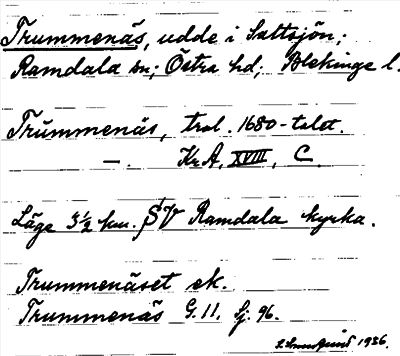 Trummenäs, udde i Saltsjön;
Ramdala sn; Östra hd; Blekinge l.
Trummenäs, trol. 1680-talet.
—. KrA, XVIII, C.
Läge 3½ km. SV Ramdala kyrka.
Trummenäset ek.
Trummenäs G. 11. Sj. 96.
1936.